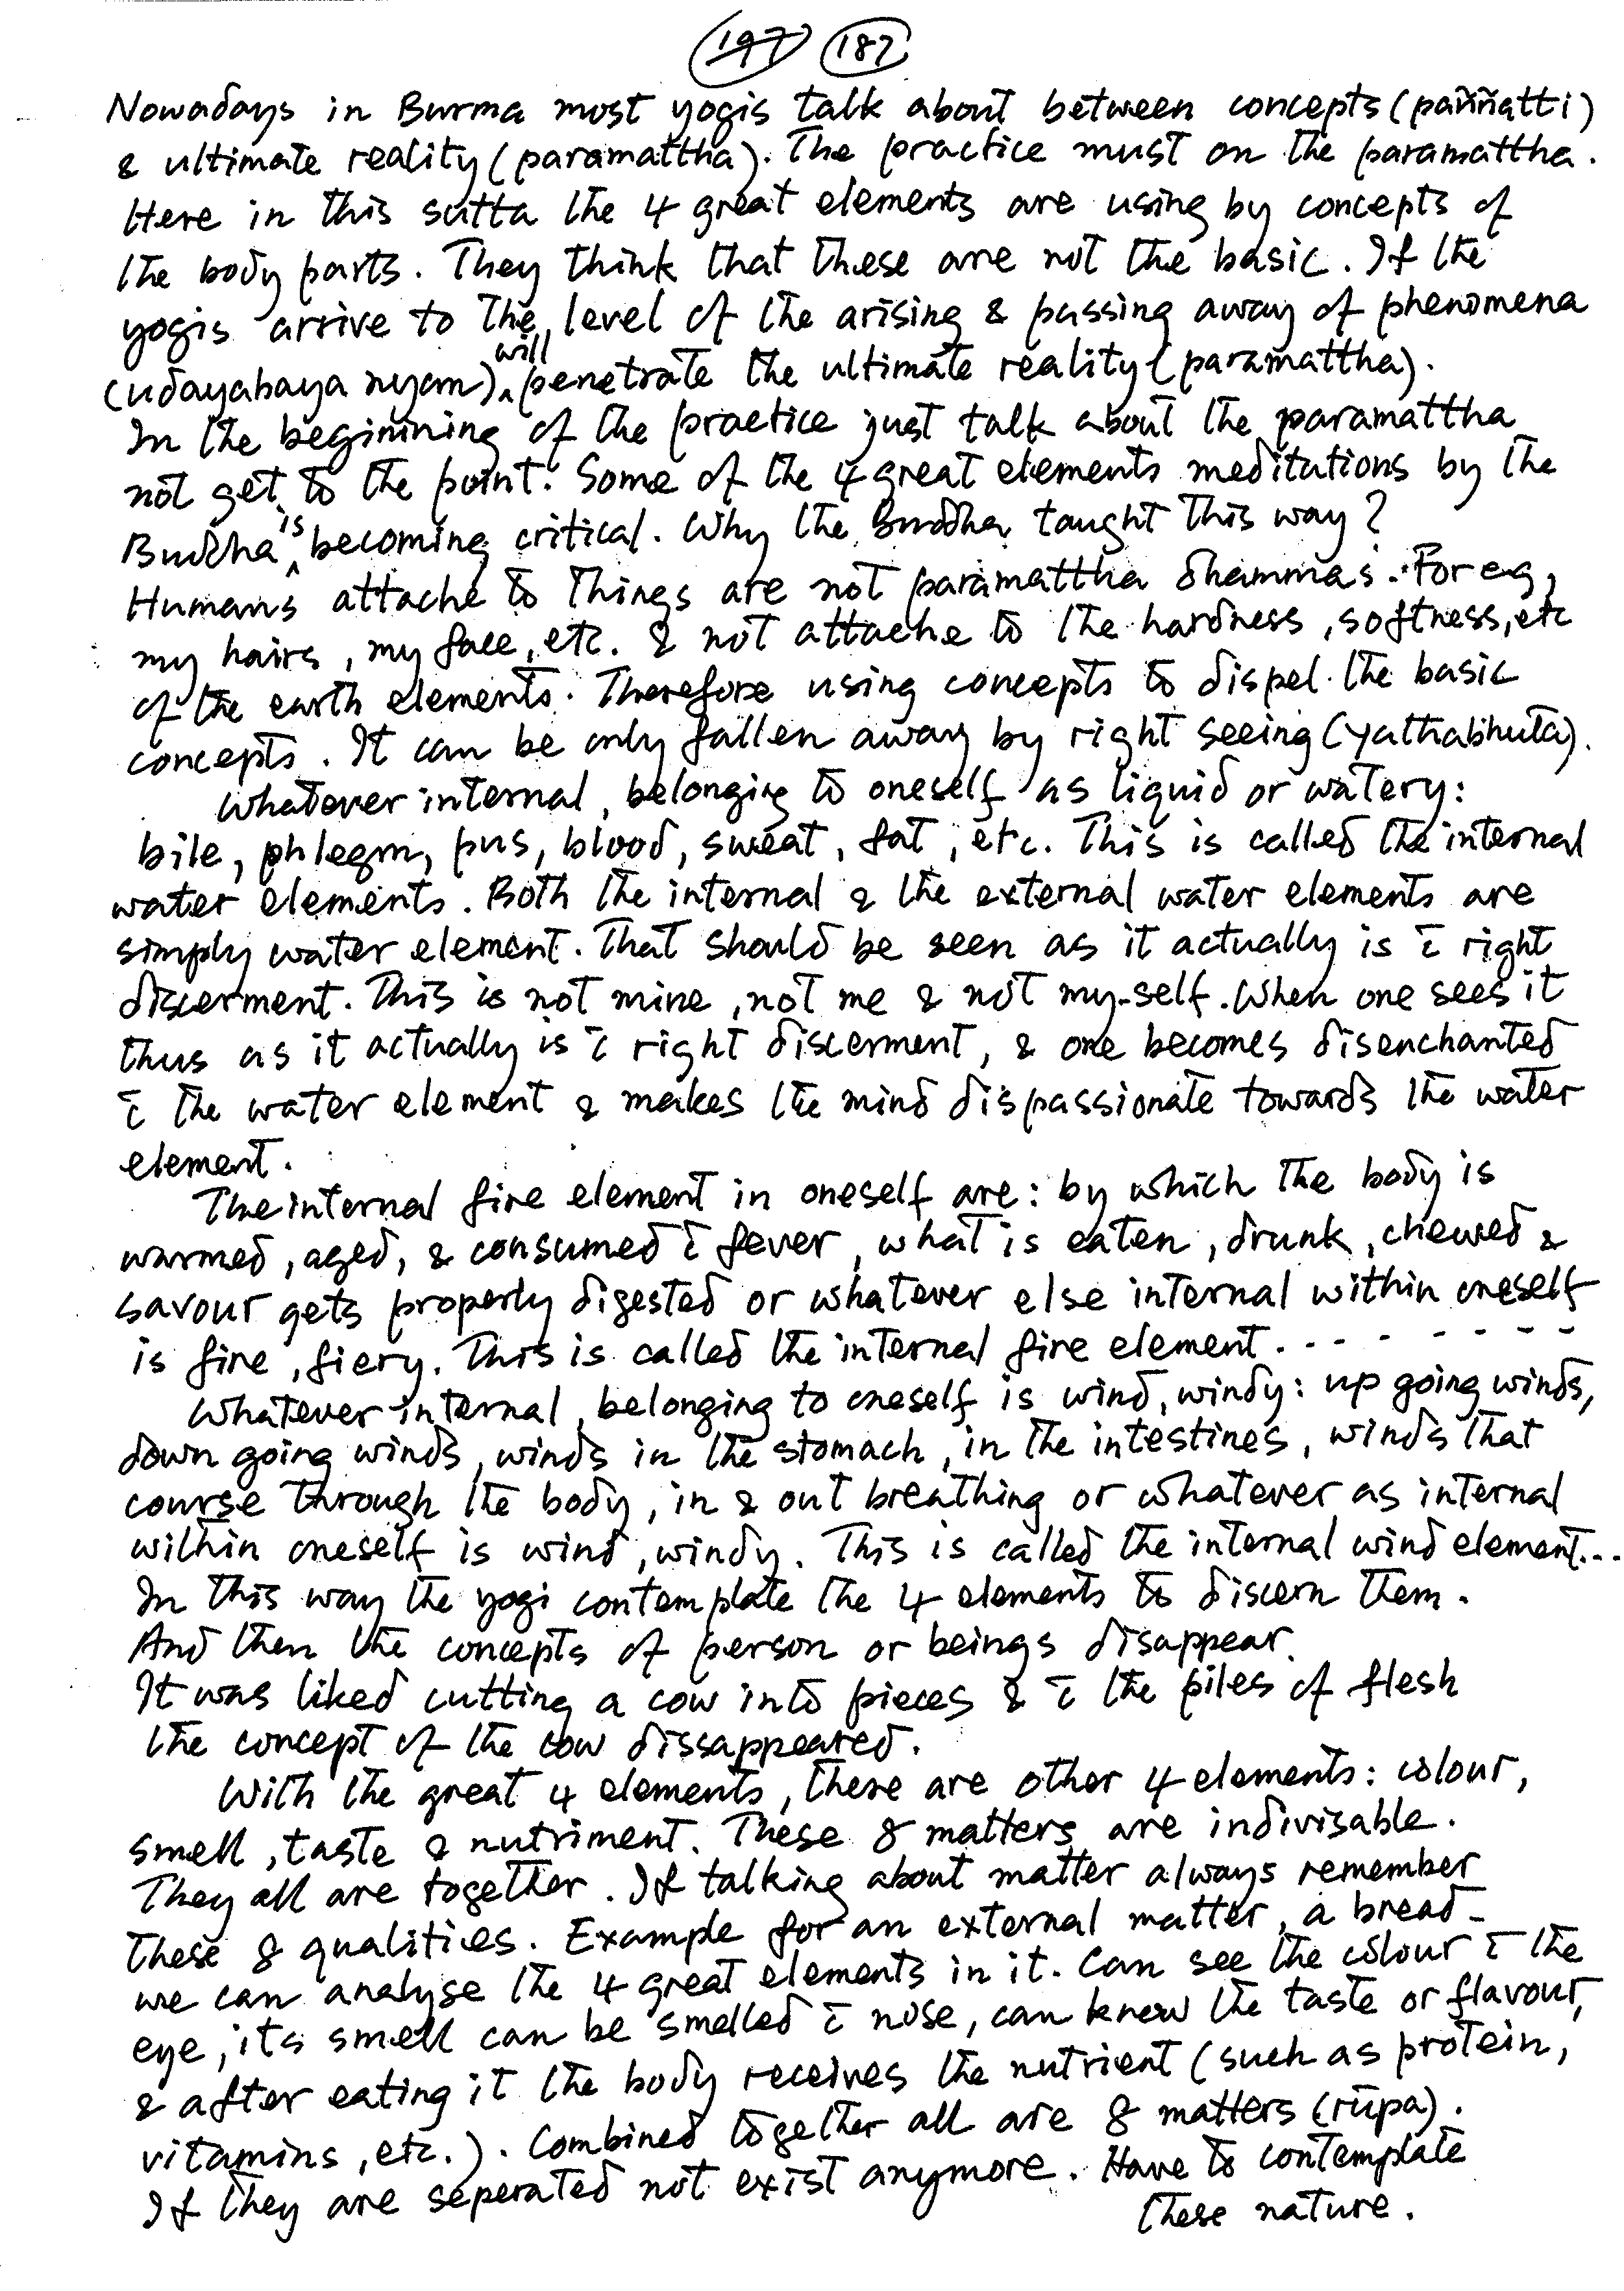 197 187
Nowadays in Burma most yogis talk about between concepts (paññatti)
& ultimate reality (paramattha). The practice must on the paramattha.
Here in this sutta the 4 great elements are using by concepts of
the body parts. They think that these are not the basic. If the
yogis arrive to the level of the arising & passing away of phenomena
will
(udayabaya nyam) ^ penetrate the ultimate reality (paramattha).
In the beginining of the practice just talk about the paramattha
not get to the point. Some of the 4 great elements meditations by the
Buddha is becoming critical. Why the Buddha taught this way?
Humans attache to things are not paramattha dhammas. For eg,
my hairs, my face, etc. & not attache to the hardness, softness, etc
of the earth elements. Therefore using concepts to dispel the basic
concepts. It can be only fallen away by right seeing (yathabhuta).
Whatever internal, belonging to oneself as liquid or watery:
bile, phlegm, pus, blood, sweat, fat, etc. This is called the internal
water elements. Both the internal & the external water elements are
simply water element. That should be seen as it actually is c̄ right
discerment. This is not mine, not me & not my-self. When one sees it
thus as it actually is c̄ right discerment, & one becomes disenchanted
c̄ the water element & makes the mind dispassionate towards the water
element.
The internal fire element in oneself are: by which the body is
warmed, aged, & consumed c̄ fever, what is eaten, drunk, chewed &
savour gets properly digested or whatever else internal within oneself
is fire, fiery. This is called the internal fire element. - - - - - - - -
Whatever internal, belonging to oneself is wind, windy: up going winds,
down going winds, winds in the stomach, in the intestines, winds that
course through the body, in & out breathing or whatever as internal
within oneself is wind, windy. This is called the internal wind element...
In this way the yogi contemplate the 4 elements to discern them.
And then the concepts of person or beings disappear.
It was liked cutting a cow into pieces & c̄ the piles of flesh
the concept of the cow dissappeared.
With the great 4 elements, there are other 4 elements: colour,
smell, taste & nutriment. These 8 matters are indivisable.
They all are together. If talking about matter always remember
these 8 qualities. Example for an external matter, a bread-
we can analyse the 4 great elements in it. Can see the colour c̄ the
eye, its smell can be smelled c̄ nose, can know the taste or flavour,
& after eating it the body receives the nutrient (such as protein,
vitamins, etc.). Combined together all are 8 matters (rūpa).
If they are seperated not exist anymore. Have to contemplate
these nature.